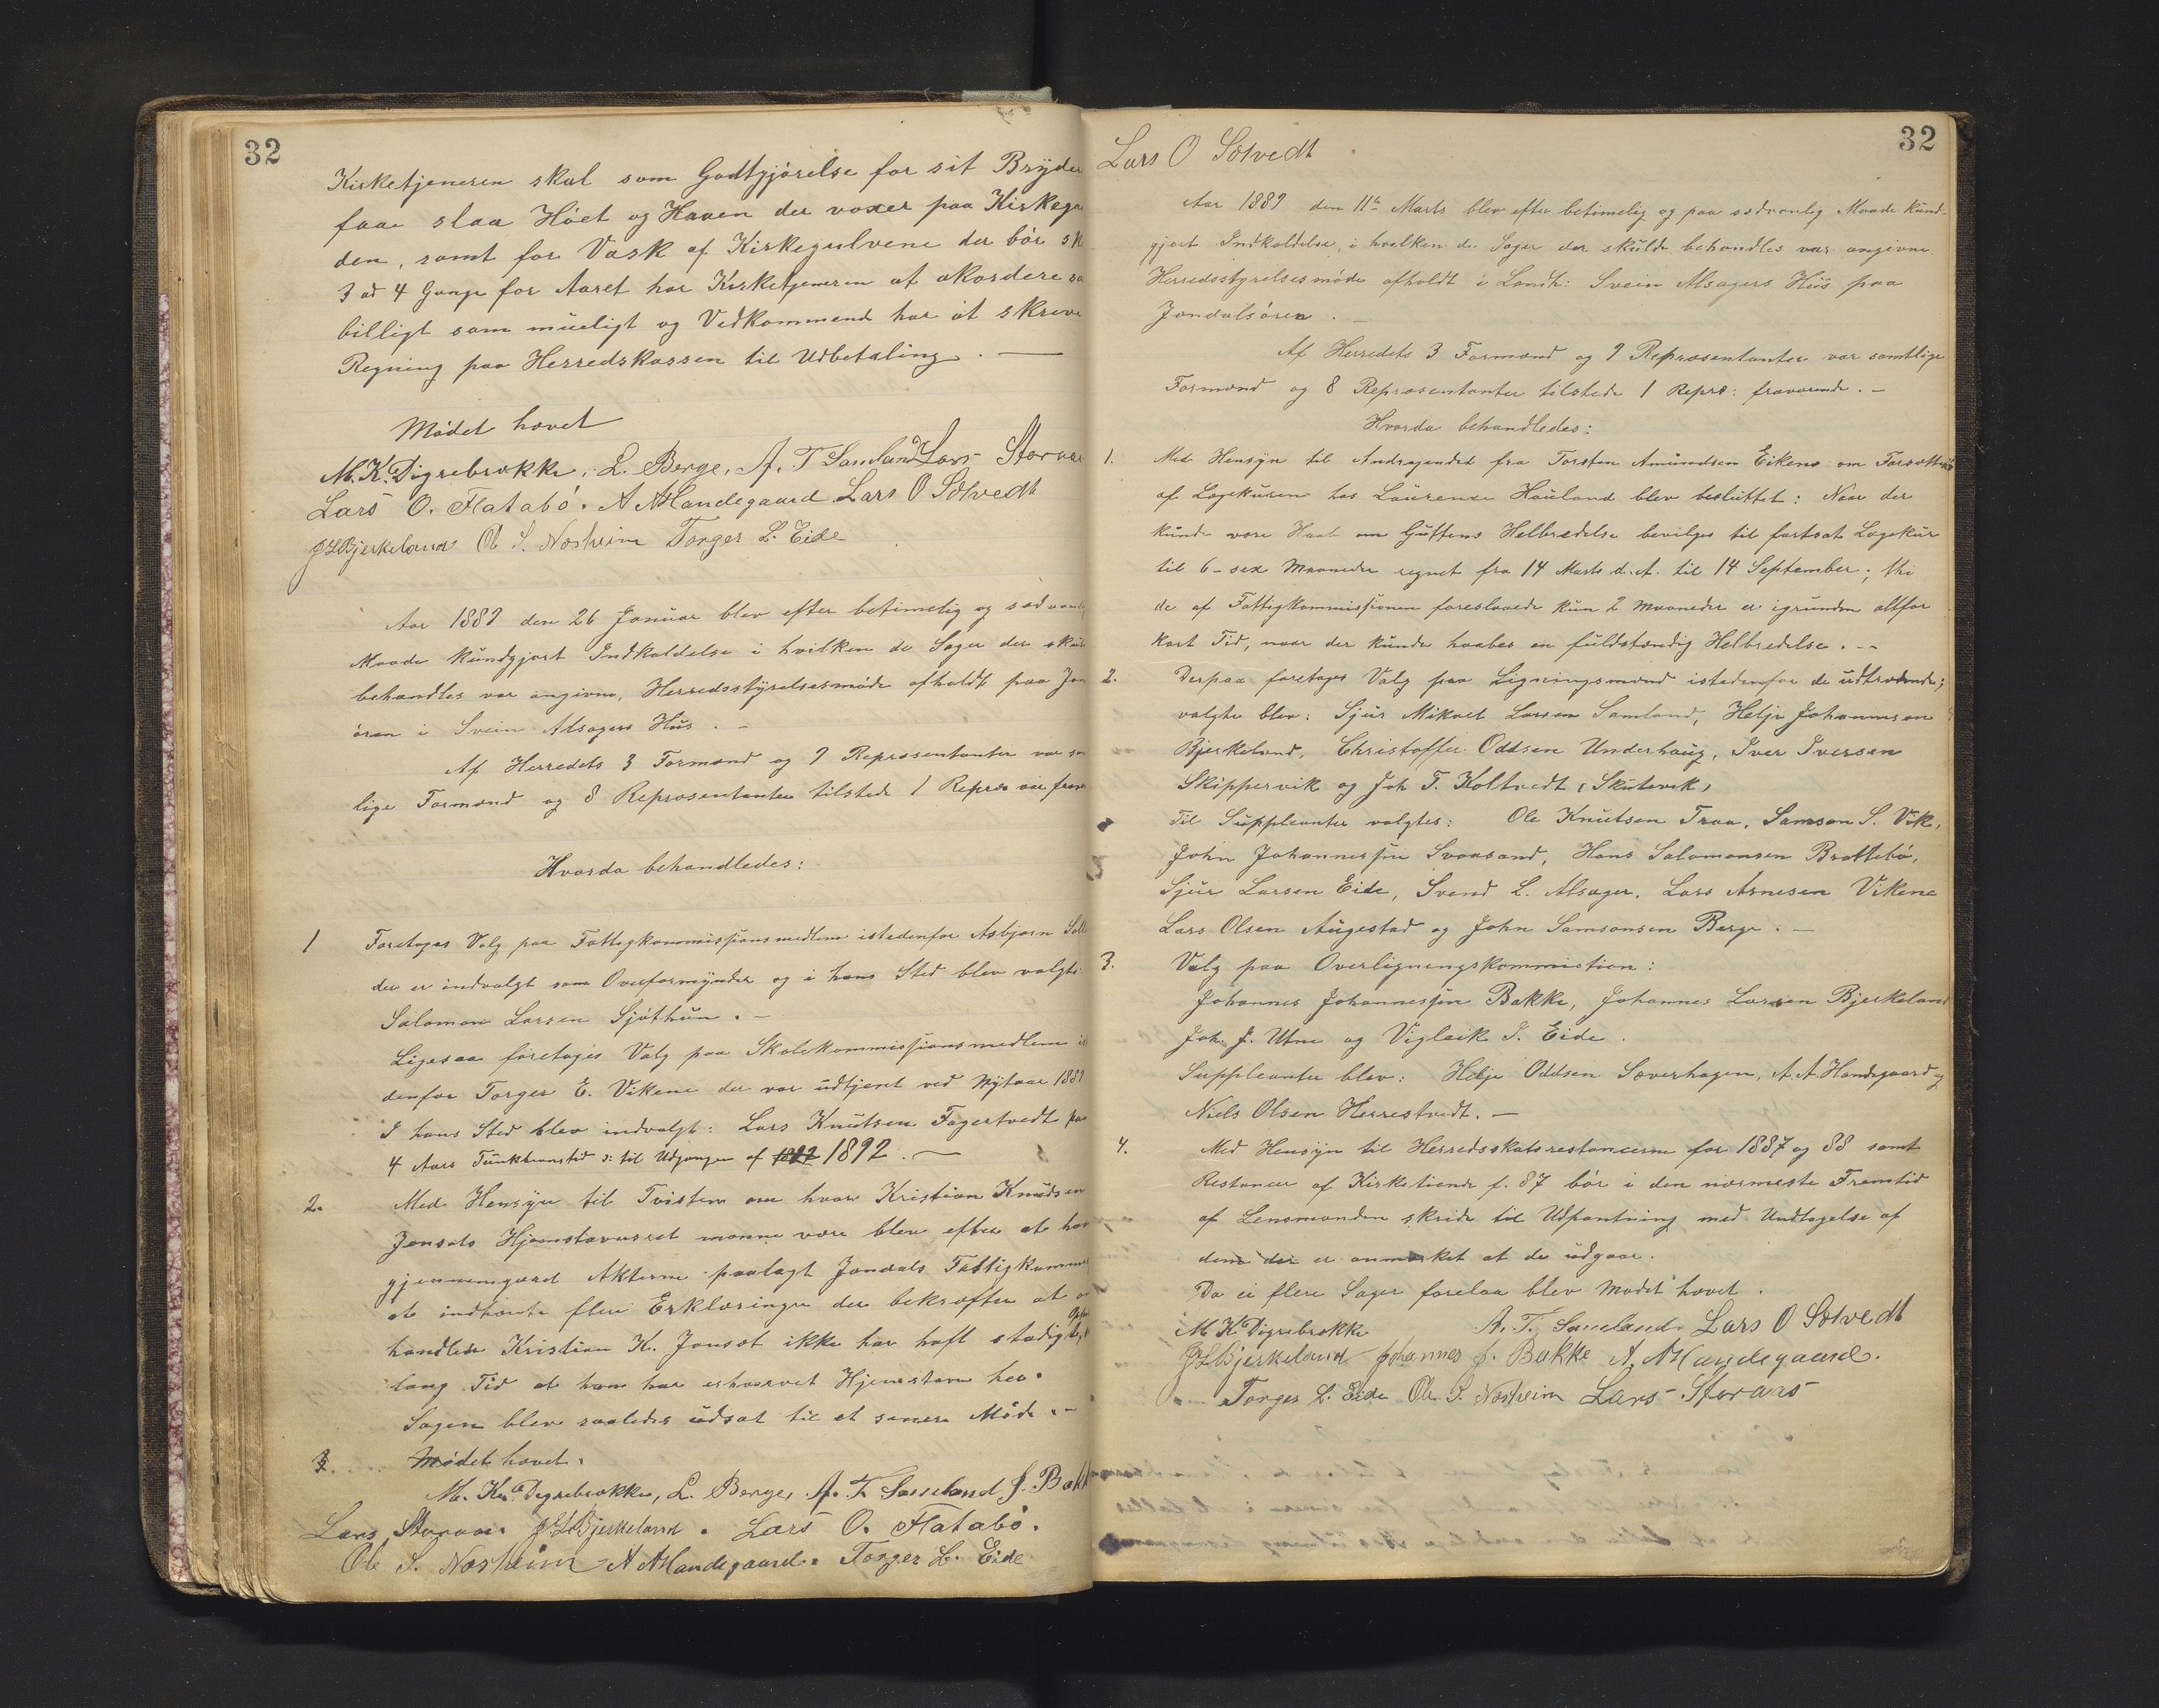 32
Kirketjeneren skal som Godtgjørelse for sit Bryder
faae slaa Høet og Haaen der voxer paa Kirkega
den, samt for Vask af Kirkegulvene der bør sk
3 ad 4 Gange for Aaret har Kirketjeneren at akordere sa
billigt som mueligt og Vedkommend har at skreve
Regning paa Herredskassen til Udbetaling. —
Mødet hævet
M. K. Digrebrække, L. Berge, A. T. Samland Lars Storaas
Lars O. Flatabø. A A Handegaard Lars O Solvedt
J L Bjerkeland Ol. S. Næsheim Torger L. Eide
Aar 1889 den 26 Januar blev efter betimelig og sædvanlig
Maade kundgjort Indkaldelse i hvilken de Sager der skul
behandles var angivne, Herredsstyrelsesmøde afholdt paa Jon
øren i Svein Alsagers Hus. —
Af Herredets 3 Formænd og 9 Repræsentanter var sam
lige Formænd og 8 Repræsentanter tilstede 1 Repræs var frav
Hvorda behandledes:
1 Foretoges Valg paa Fattigkommissionsmedlem istedenfor Asbjørn
der er indvalgt som Overformynder og i hans Sted blev valgt:
Salomon Larsen Sjøthun. —
Ligesaa foretoges Valg paa Skolekommissionsmedlem i
denfor Torger E. Vikene der var udtjent ved Nytaar 1889
I hans Sted blev indvalgt: Lars Knutsen Fagertvedt paa
4 Aars Funktionstid ɔ: til Udgangen af 1892. —
2. Med Hensyn til Tvisten om hvor Kristian Knudsen
Jonsets Hjemstavnsret monne være blev efter at hav
gjennemgaaed Akterne paalagt Jondals Fattigkomm
at indhænte flere Erklæringer der bekræfter at o
handlede Kristian K. Jonsæt ikke har haft stadigt Oph
lang Tid at han har erhvervet Hjemstavn her.
Sagen blev saaledes udsat til et senere Møde. —
3. Mødet hævet.
M. K. Digrebrække, L. Berge, A. T. Samland J. Bakk
Lars Storaas. J L Bjerkeland. Lars O. Flatabø.
Ole S. Næsheim A A Handegaard. Torger L. Eide
32
Lars O Solvedt
Aar 1889 den 11te Marts blev efter betimelig og paa sædvanlig Maade kund-
gjort Indkaldelse, i hvilken de Sager der skulde behandles var angivne
Herredsstyrelsesmøde afholdt i Landh: Svein Alsagers Hus paa
Jondalsøren. —
Af Herredets 3 Formænd og 9 Repræsentanter var samtlige
Formænd og 8 Repræsentanter tilstede 1 Repræ: fraværende. —
Hvorda behandledes:
1. Med Hensyn til Andragendet fra Torsten Amundsen Eikens om Forsættelse
af Lægekuren hos Laurence Hauland blev besluttet: Naar der
kunde være Haab om Guttens Helbredelse bevilges til fortsat Lægekur
til 6 - sex Maaneder regnet fra 14 Marts d. A. til 14 September; thi
de af Fattigkommissionen foreslaaede kun 2 Maaneder er igrunden altfor
kort Tid, naar der kunde haabes en fuldstændig Helbredelse. —
2. Derpaa foretoges Valg paa Ligningsmænd istedenfor de udtrædende;
valgte blev: Sjur Mikael Larsen Samland, Helje Johannessen
Bjerkeland, Christoffer Oddsen Underhaug, Iver Iversen
Skippervik og Joh T. Koltvedt (Skutevik)
Til Suppleanter valgtes: Ole Knutsen Traa, Samson S. Vik,
John Johannessen Svaasand, Hans Salomonsen Brattebø,
Sjur Larsen Eide, Svend L. Alsager, Lars Arnesen Vikene
Lars Olsen Augestad og John Samsonsen Berge. —
3. Valg paa Overligningskommission:
Johannes Johannessen Bakke, Johannes Larsen Bjerkeland
Joh. J. Utne og Vigleik S. Eide.
Suppleanter blev: Helje Oddsen Sæverhagen, A. A. Handegaard og
Niels Olsen Herrestvedt. —
4. Med Hensyn til Herredsskatsrestancerne for 1887 og 88 samt
Restancer af Kirketiende f. 87 bør i den nærmeste Fremtid
af Lensmanden skride til Udpantning med Undtagelse af
dem der er anmærket at de udgaar.
Da ei flere Sager forelaa blev Mødet hævet.
M. K. Digrebrække A. T. Samland. Lars O Solvedt
J L Bjerkeland Johannes J. Bakke A. A Handegaard.
Torger L. Eide Ole S. Næsheim Lars Storaas